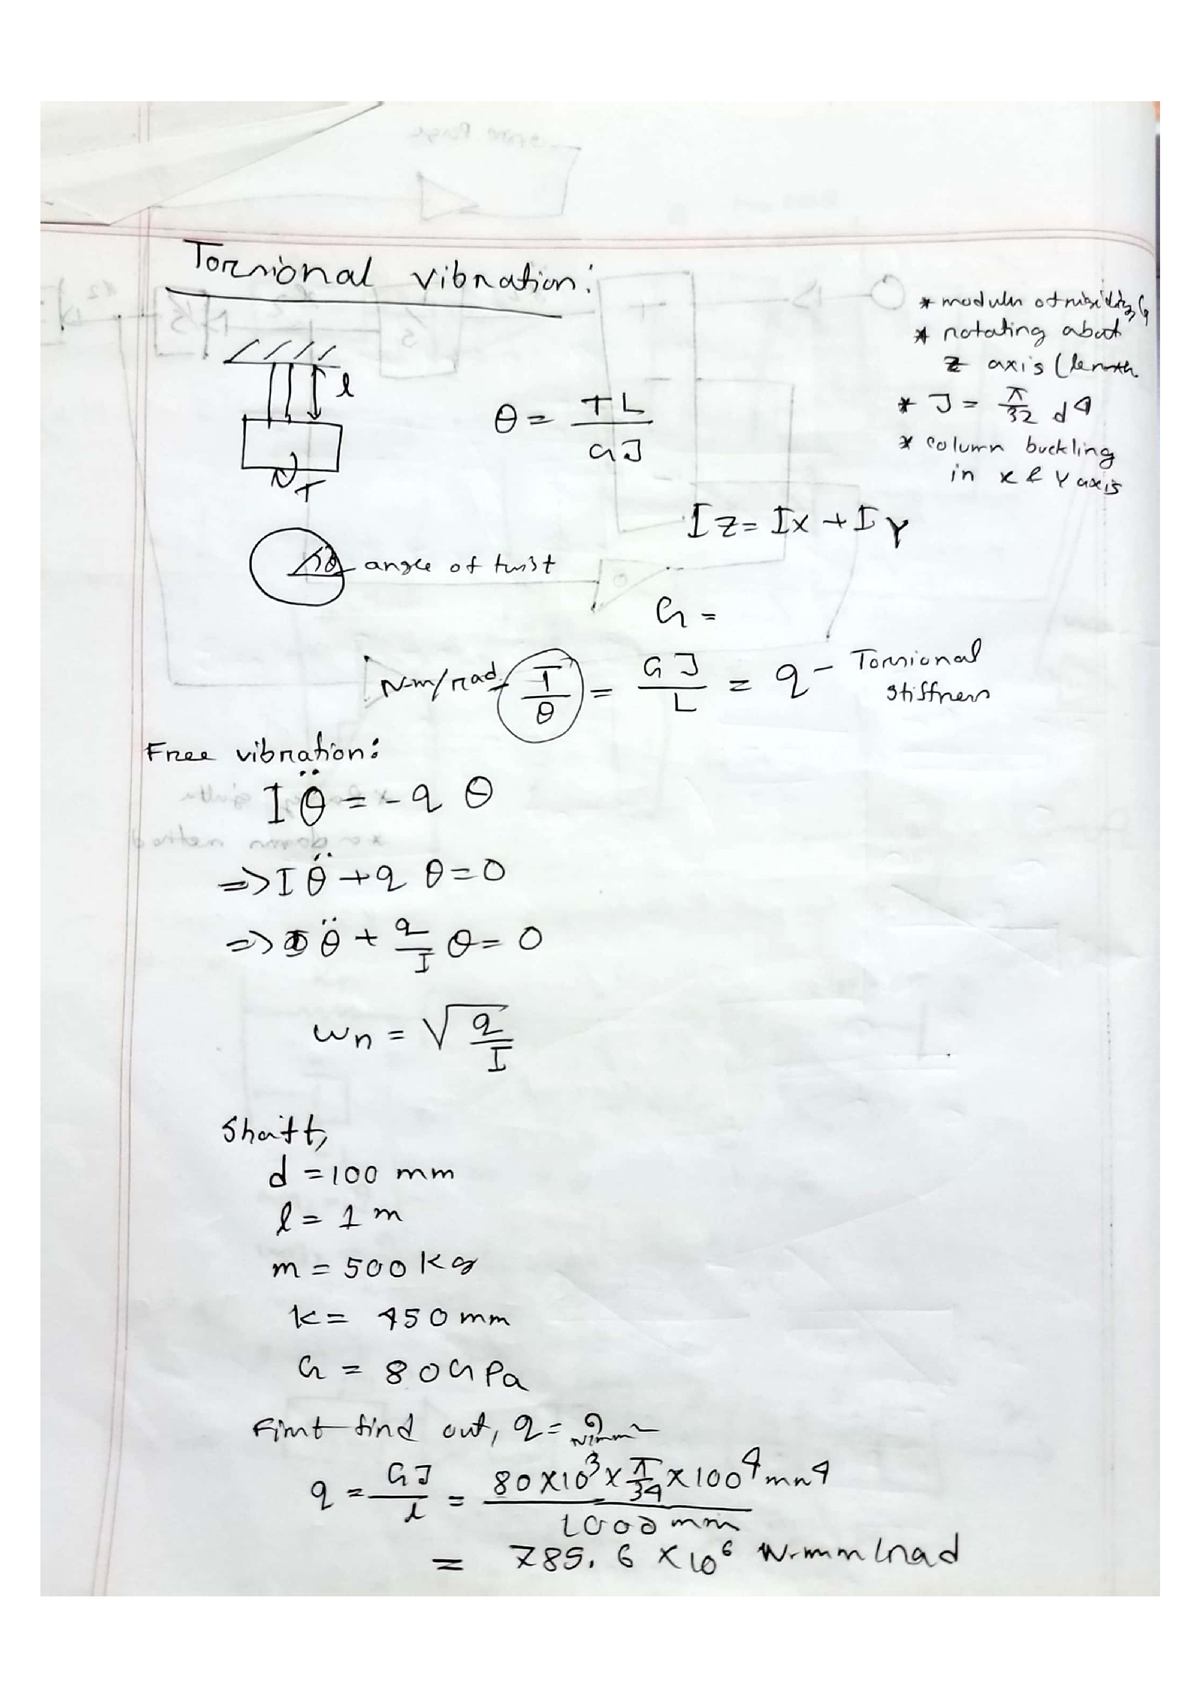 Torsional vibration:
* modulu of rigidity, G
* rotating about
z axis (length
l
θ = TL / GJ
* J = π/32 d4
* column buckling
in x & Y axis
T
Iz = Ix + IY
θ angle of twist
G =
N-m/rad - T/θ = GJ/L = q - Torsional
stiffness
Free vibration:
I θ̈ = - q θ
=> I θ̈ + q θ = 0
=> θ̈ + q/I θ = 0
wn = √(q/I)
Shaft,
d = 100 mm
l = 1 m
m = 500 kg
k = 450 mm
G = 80 GPa
First find out, q = ?
q = GJ/l = 80 x 10³ x π/34 x 100⁴ mm4 / 1000 mm
= 785.6 x 10⁶ N-mm/rad